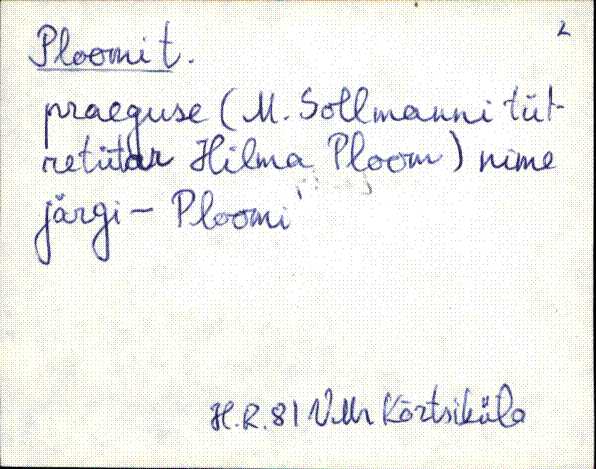 2
Ploomi t.
praeguse (M. Sollmanni tüt-
retütar Hilma Ploom) nime
järgi – Ploomi'
H.R. 81 VMr Kõrtsiküla